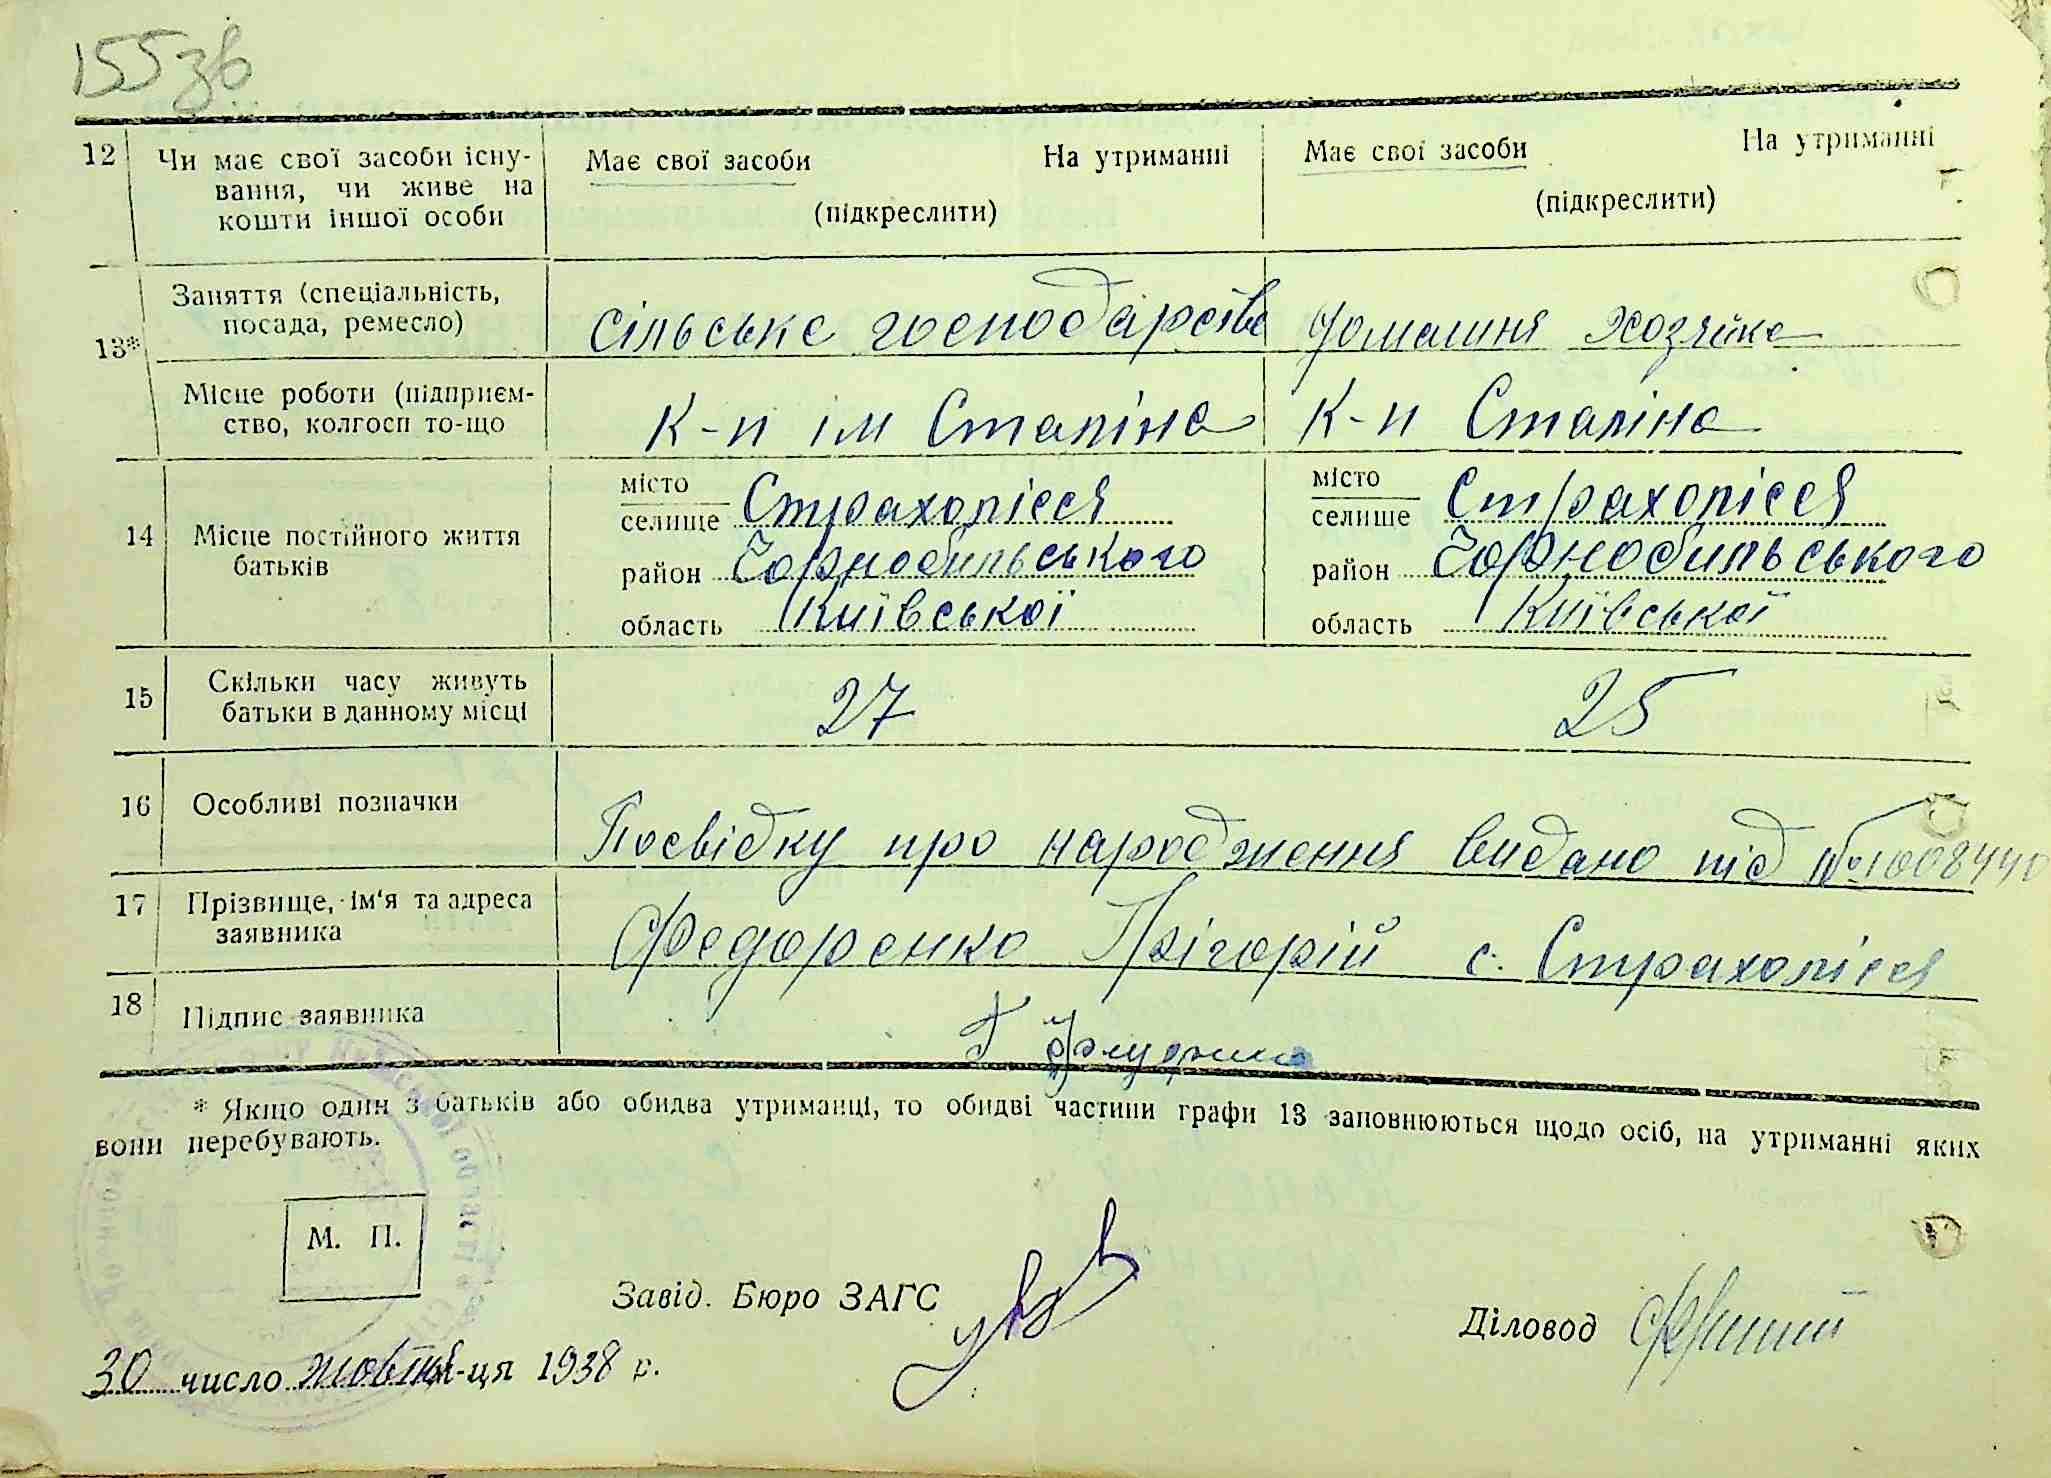 155зв
12 Чи має свої засоби існу-
вання, чи живе на
кошти іншої особи
Має свої засоби На утриманні
(підкреслити)
Має свої засоби На утриманні
(підкреслити)
13* Заняття (спеціальність,
посада, ремесло)
сільське господарство
домашня хозяйка
Місце роботи (підприєм-
ство, колгосп то-що
К-п ім Сталіна
К-п Сталіна
14 Місце постійного життя
батьків
місто
селище Страхолісся
район Чорнобильського
область Київської
місто
селище Страхолісся
район Чорнобильського
область Київської
15 Скільки часу живуть
батьки в данному місці
27
25
16 Особливі позначки
Посвідку про народження видано під № 1008440
17 Прізвище, ім'я та адреса
заявника
Федоренко Грігорій с. Страхолісся
18 Підпис заявника
Г
* Якщо один з батьків або обидва утриманці, то обидві частини графи 13 заповнюються щодо осіб, на утриманні яких
вони перебувають.
М. П.
Завід. Бюро ЗАГС
Діловод
30 число жовтня-ця 1938 р.